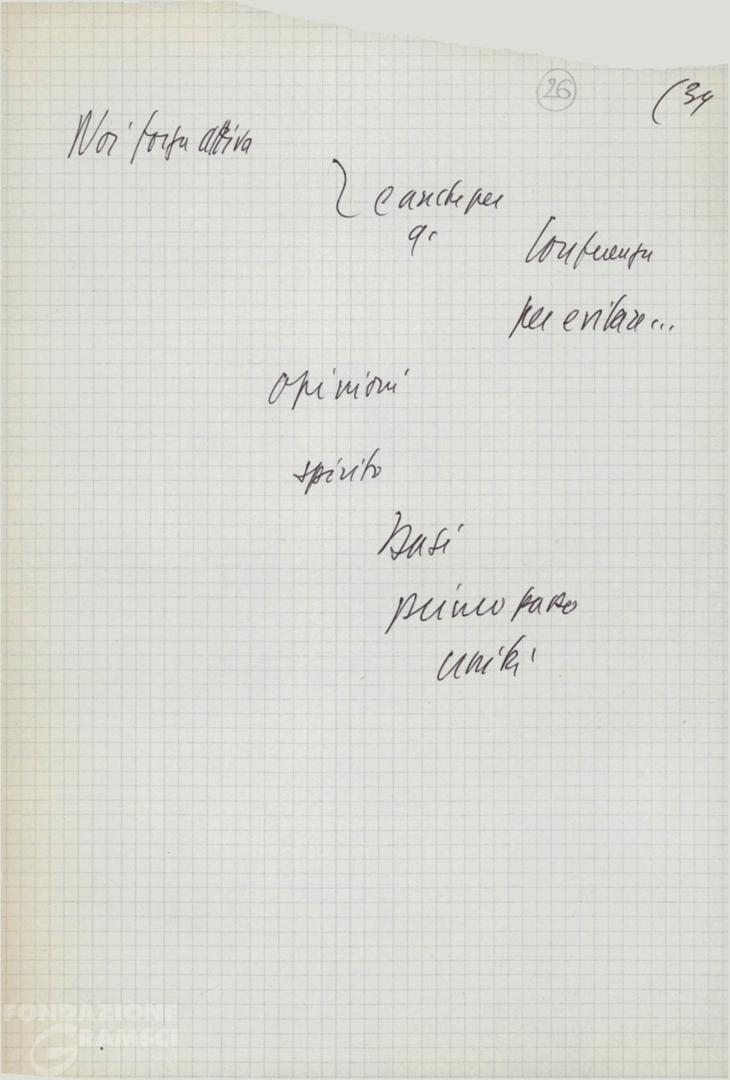 26
(34
Noi forza attiva
e anche per
Conferenza
per evitare...
opinioni
spirito
basi
primo passo
unità
FONDAZIONE
GRAMSCI